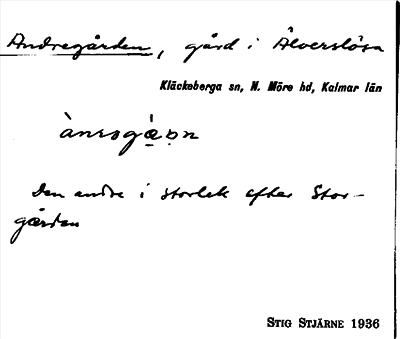 Andregården, gård i Älverslösa
Kläckeberga sn, N. Möre hd, Kalmar län
ànrsgå̀ṇn
Den andre i storlek efter Stor-
gården
STIG STJÄRNE 1936